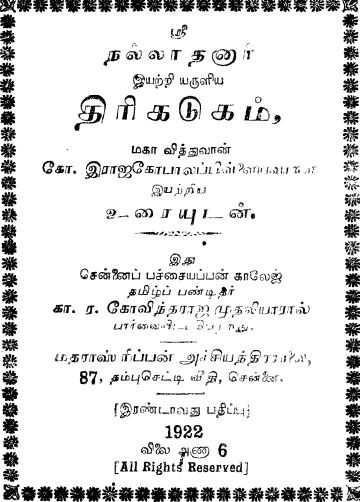 ஸ்ரீ
நல்லாதனார்
இயற்றி யருளிய
திரிகடுகம்,
மகா வித்துவான்
கோ. இராஜகோபாலப்பிள்ளையவர்கள்
இயற்றிய
உரையுடன்.
இது
சென்னைப் பச்சையப்பன் காலேஜ்
தமிழ்ப் பண்டிதர்
கா. ர. கோவிந்தராஜ முதலியாரால்
பார்வையிடப்பட்டது.
மதராஸ் ரிப்பன் அச்சியந்திரசாலை,
87, தம்புசெட்டி வீதி, சென்னை.
[இரண்டாவது பதிப்பு]
1922
விலை அணா 6
[All Rights Reserved]